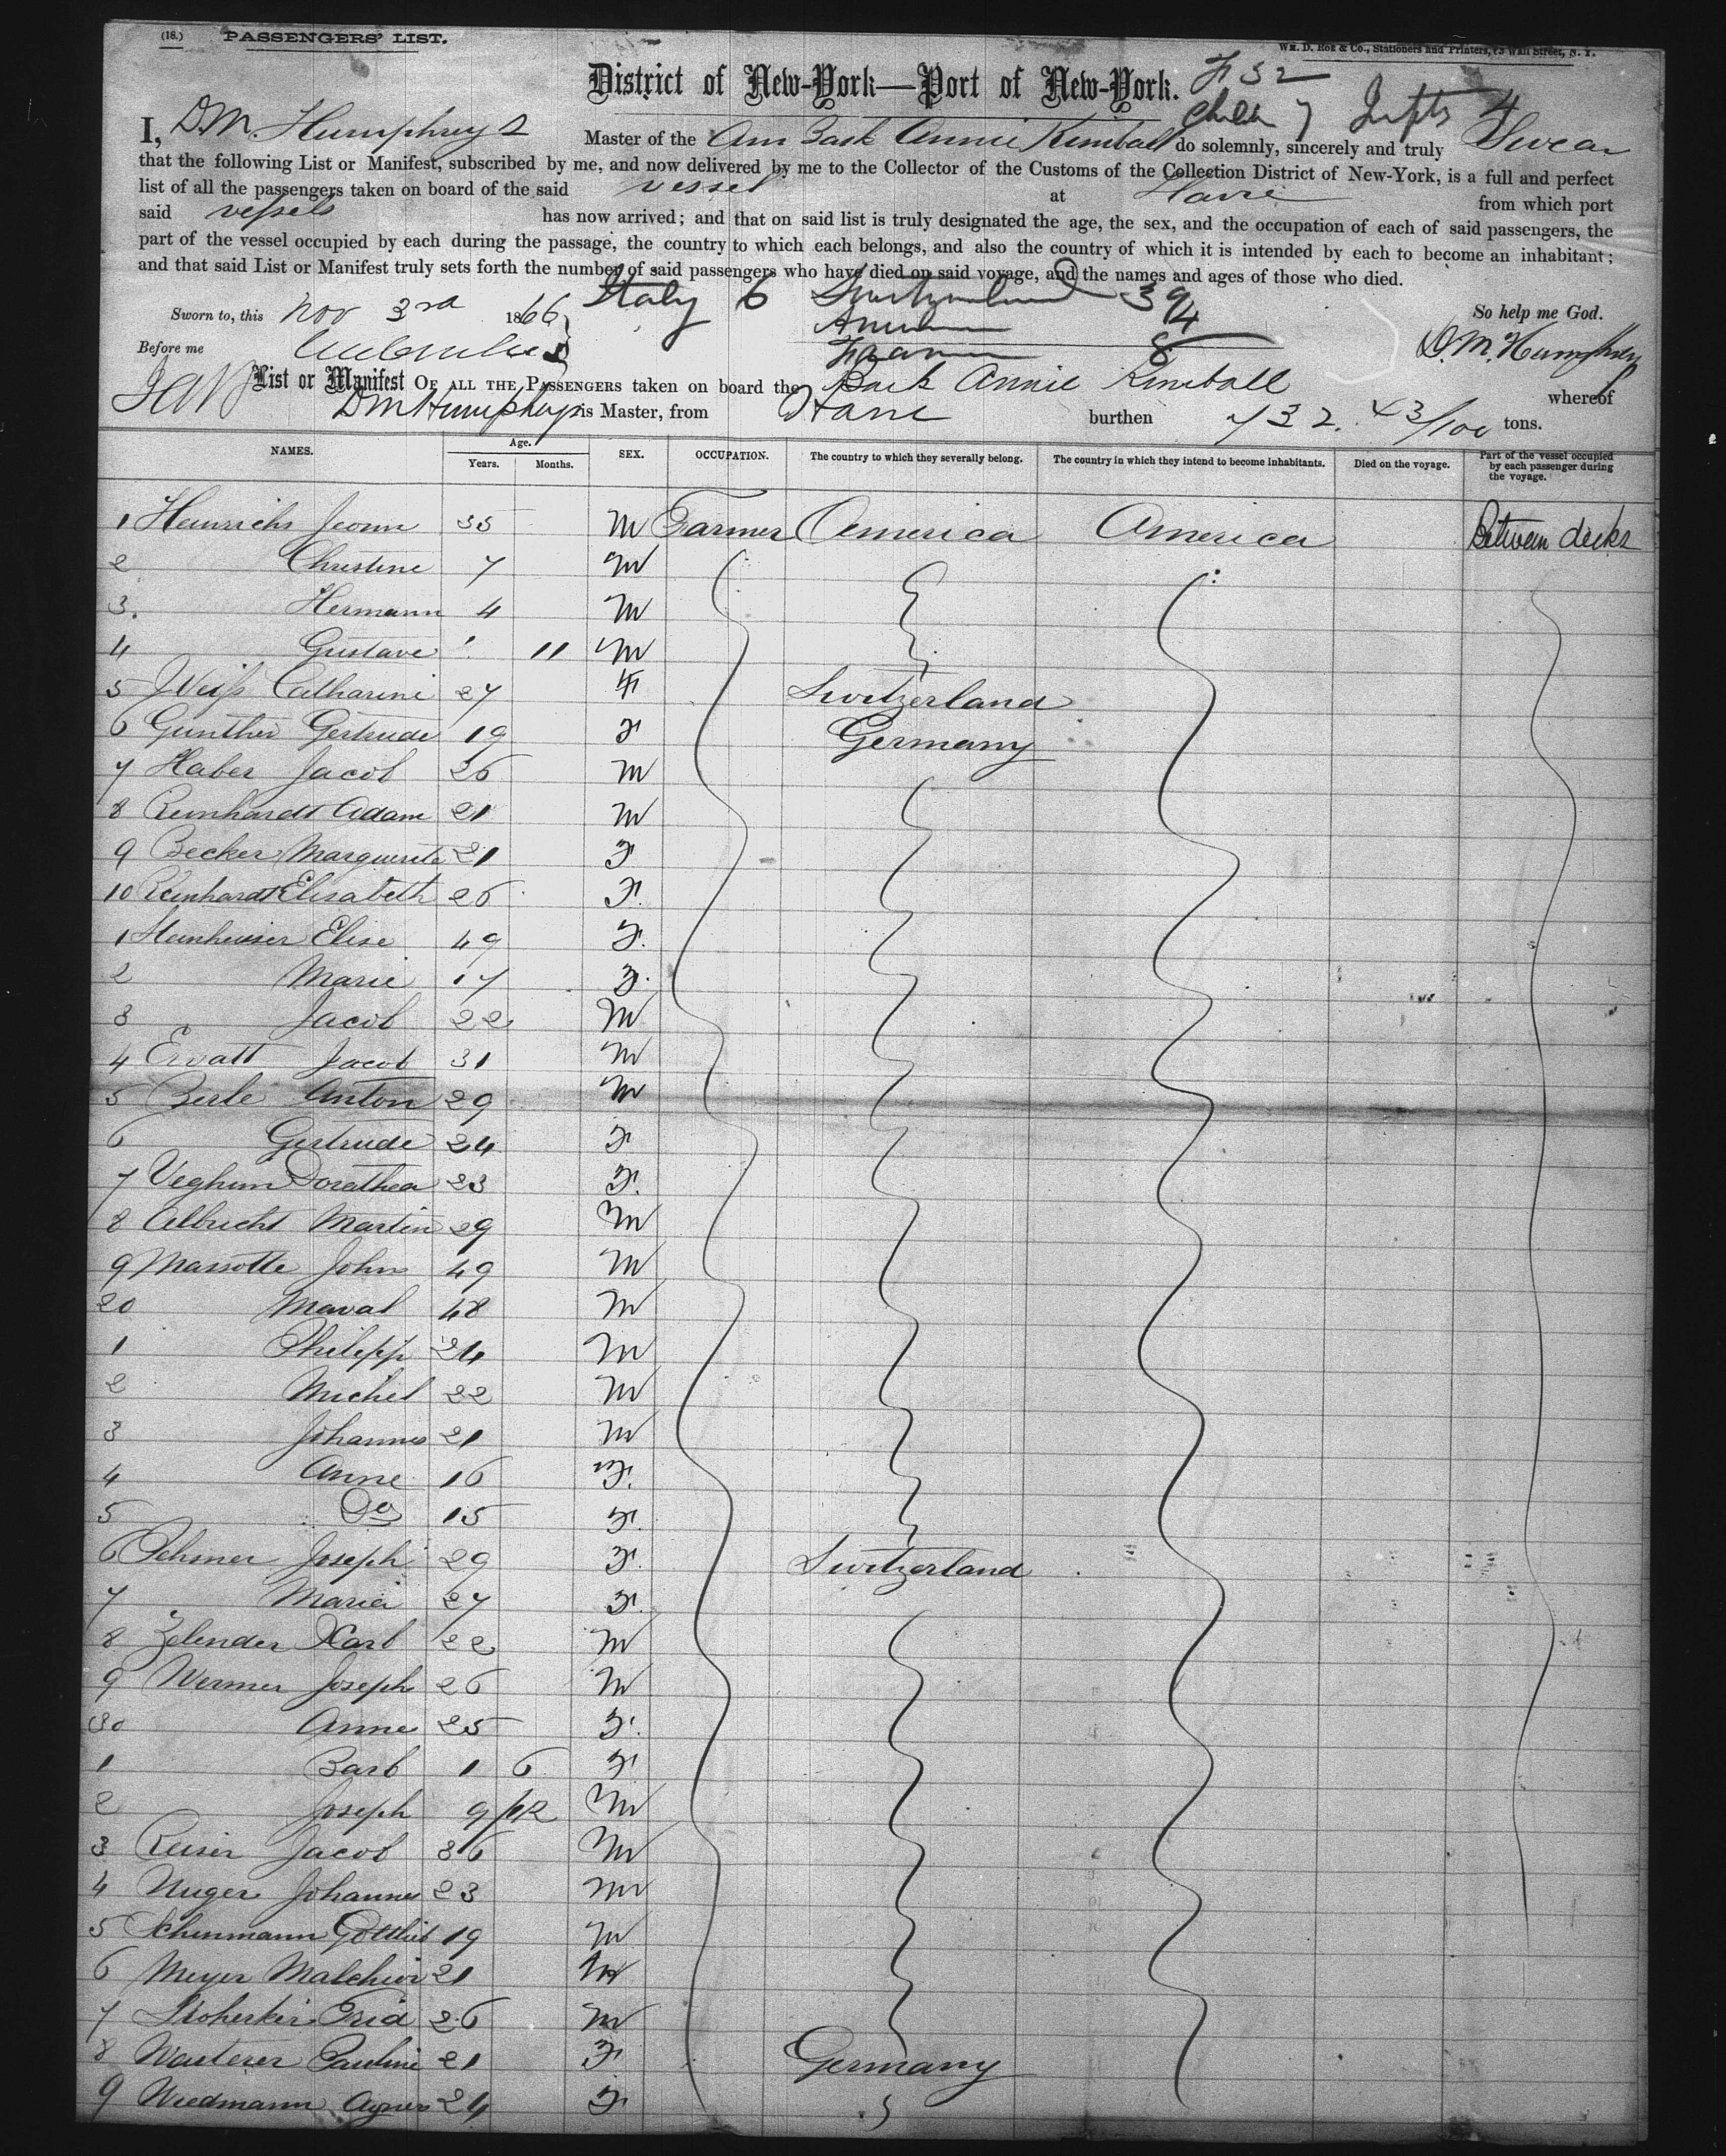 (18.) PASSENGERS' LIST.
WM. D. ROE & CO., Stationers and Printers, 63 Wall Street, N. Y.
District of New-York—Port of New-York.
F 32
Childn 7 Infts 4
I, D.M. Humphreys Master of the Am Bark Annie Kimball do solemnly, sincerely and truly Swear
that the following List or Manifest, subscribed by me, and now delivered by me to the Collector of the Customs of the Collection District of New-York, is a full and perfect
list of all the passengers taken on board of the said vessel at Havre from which port
said vessels has now arrived; and that on said list is truly designated the age, the sex, and the occupation of each of said passengers, the
part of the vessel occupied by each during the passage, the country to which each belongs, and also the country of which it is intended by each to become an inhabitant;
and that said List or Manifest truly sets forth the number of said passengers who have died on said voyage, and the names and ages of those who died.
Italy 6 Switzerland 39
Sworn to, this Nov 3rd 1866 4 So help me God.
Before me France 8 D.M. Humphrey
List or Manifest OF ALL THE PASSENGERS taken on board the Bark Annie Kimball whereof
DM Humphreys is Master, from Havre burthen 732. 43/100 tons.
NAMES. Age. Years. Months. SEX. OCCUPATION. The country to which they severally belong. The country in which they intend to become inhabitants. Died on the voyage. Part of the vessel occupied by each passenger during the voyage.
1 Heinrichs 35 M Farmer America America Between decks
2 Christine 7 M
3. Hermann 4 M
4 Gustave 11 M
5 Weiß Catharine 27 F Switzerland
6 Gunther Gertrude 19 F Germany
7 Haber Jacob 26 M
8 Reinhardt Adam 21 M
9 Becker Marguerite 21 F
10 Reinhardt Elisabeth 26 F.
1 Elise 49 F.
2 Marie 17 F.
3 Jacob 22 M
4 Ervatt Jacob 31 M
5 Berle Anton 29 M
6 Gertrude 24 F
7 Dorathea 23 F.
8 Albrecht Martin 29 M
9 Massotte John 49 M
20 48 M
1 Philipp 24 M
2 Michel 22 M
3 Johannes 21 M
4 Anne 16 F.
5 Do 15 F.
6 Joseph 29 F. Switzerland
7 Maria 27 F.
8 Zelender Karl 22 M
9 Wermer Joseph 26 M
30 Anne 25 F.
1 Barb 1 6 F
2 Joseph 9 M
3 Reiser Jacob 36 M
4 Nuger Johannes 23 M
5 Schinmann Gottlieb 19 M
6 Meyer Malchior 21 M
7 Frid 26 M
8 Wauterer Pauline 21 F Germany
9 Wiedmann Agnes 24 F